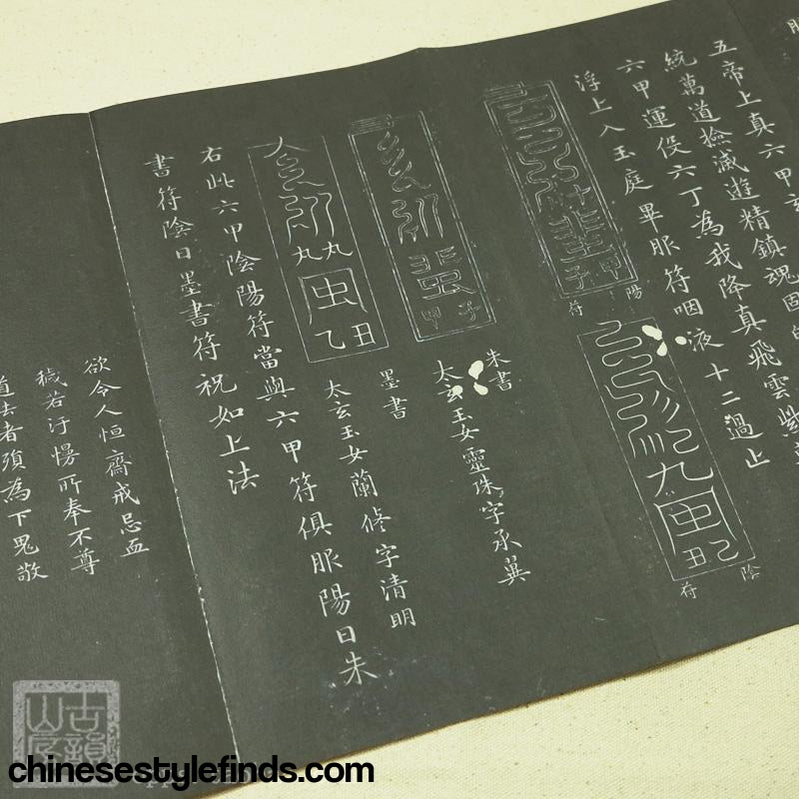 五帝上真六甲
統萬道撿滅遊精鎮魂固
六甲運役六丁為我降真飛雲紫
浮上入玉庭畢服符咽液十二過止
陽符
甲子
陰符
乙丑
朱書
太玄玉女靈珠字承翼
甲子
墨書
太玄玉女蘭修字清明
乙丑
右此六甲陰陽符當與六甲符俱服陽日朱
書符陰日墨書符祝如上法
欲令人恒齋戒忌血
穢若汙慢所奉不尊
道去者須為下鬼敬
古韻山房
chinesestylefinds.com